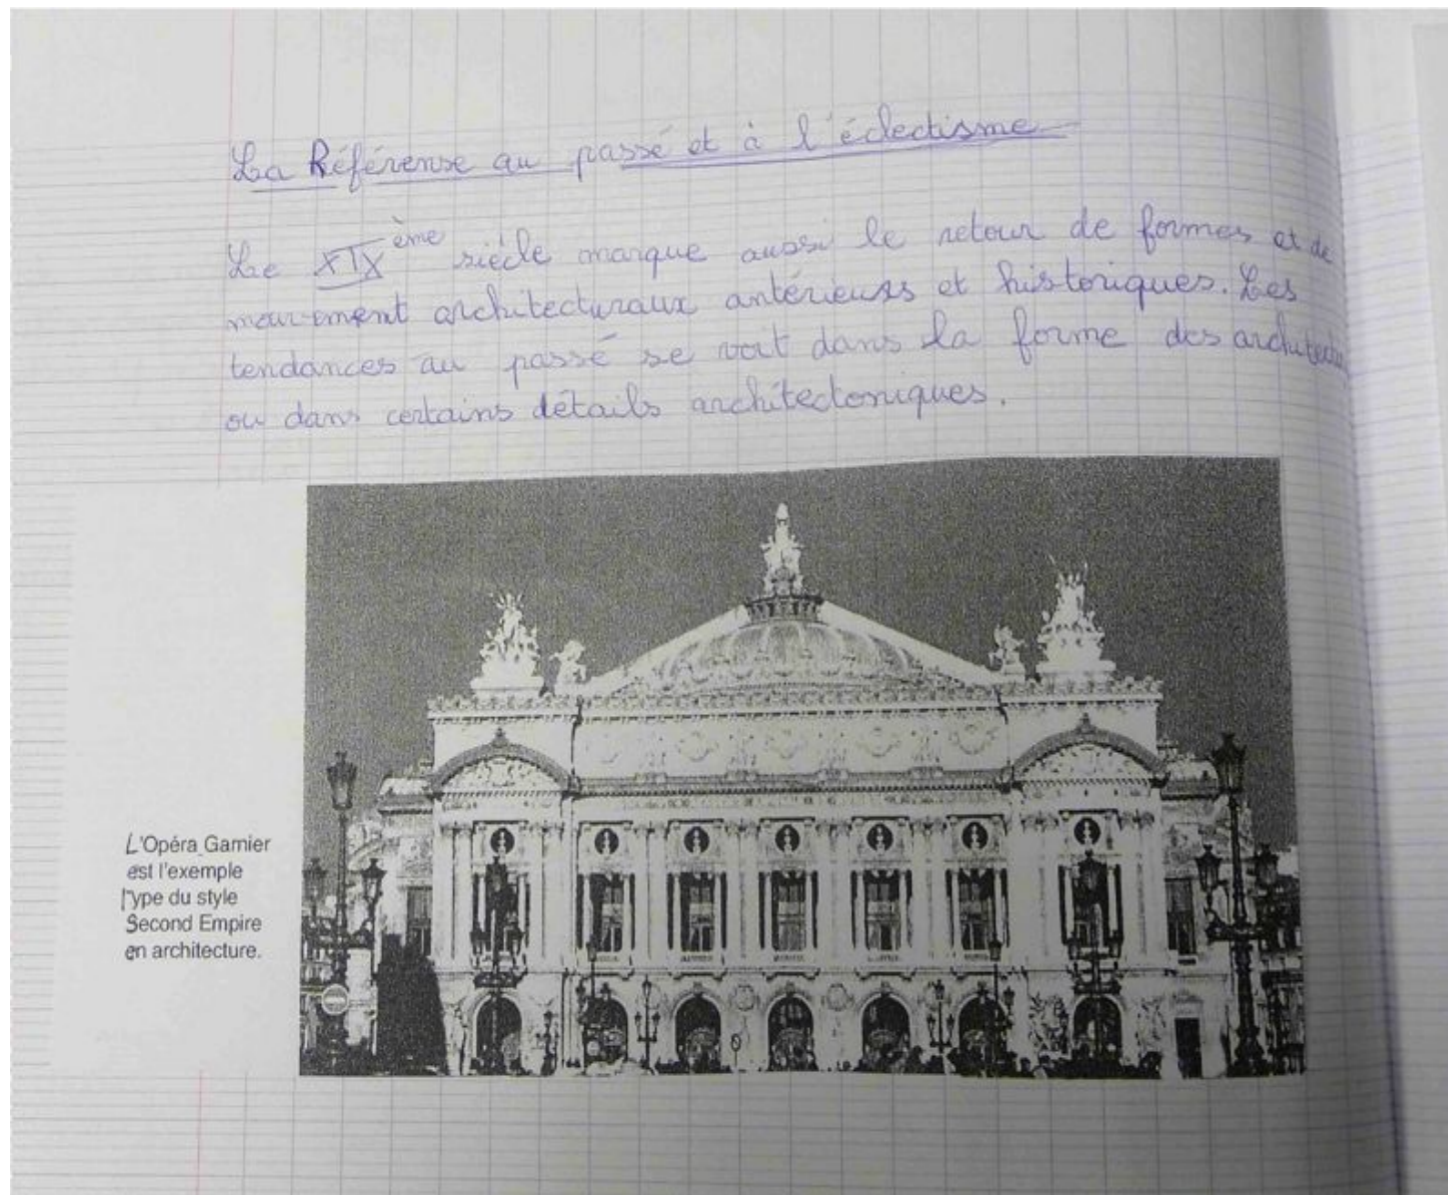 La Référense au passé et à l'éclectisme
Le XIXème siècle marque aussi le retour de formes et de
mouvement architecturaux antérieurs et historiques. Les
tendances au passé se voit dans la forme des
ou dans certains détails architectoniques.
L'Opéra Garnier
est l'exemple
type du style
Second Empire
en architecture.